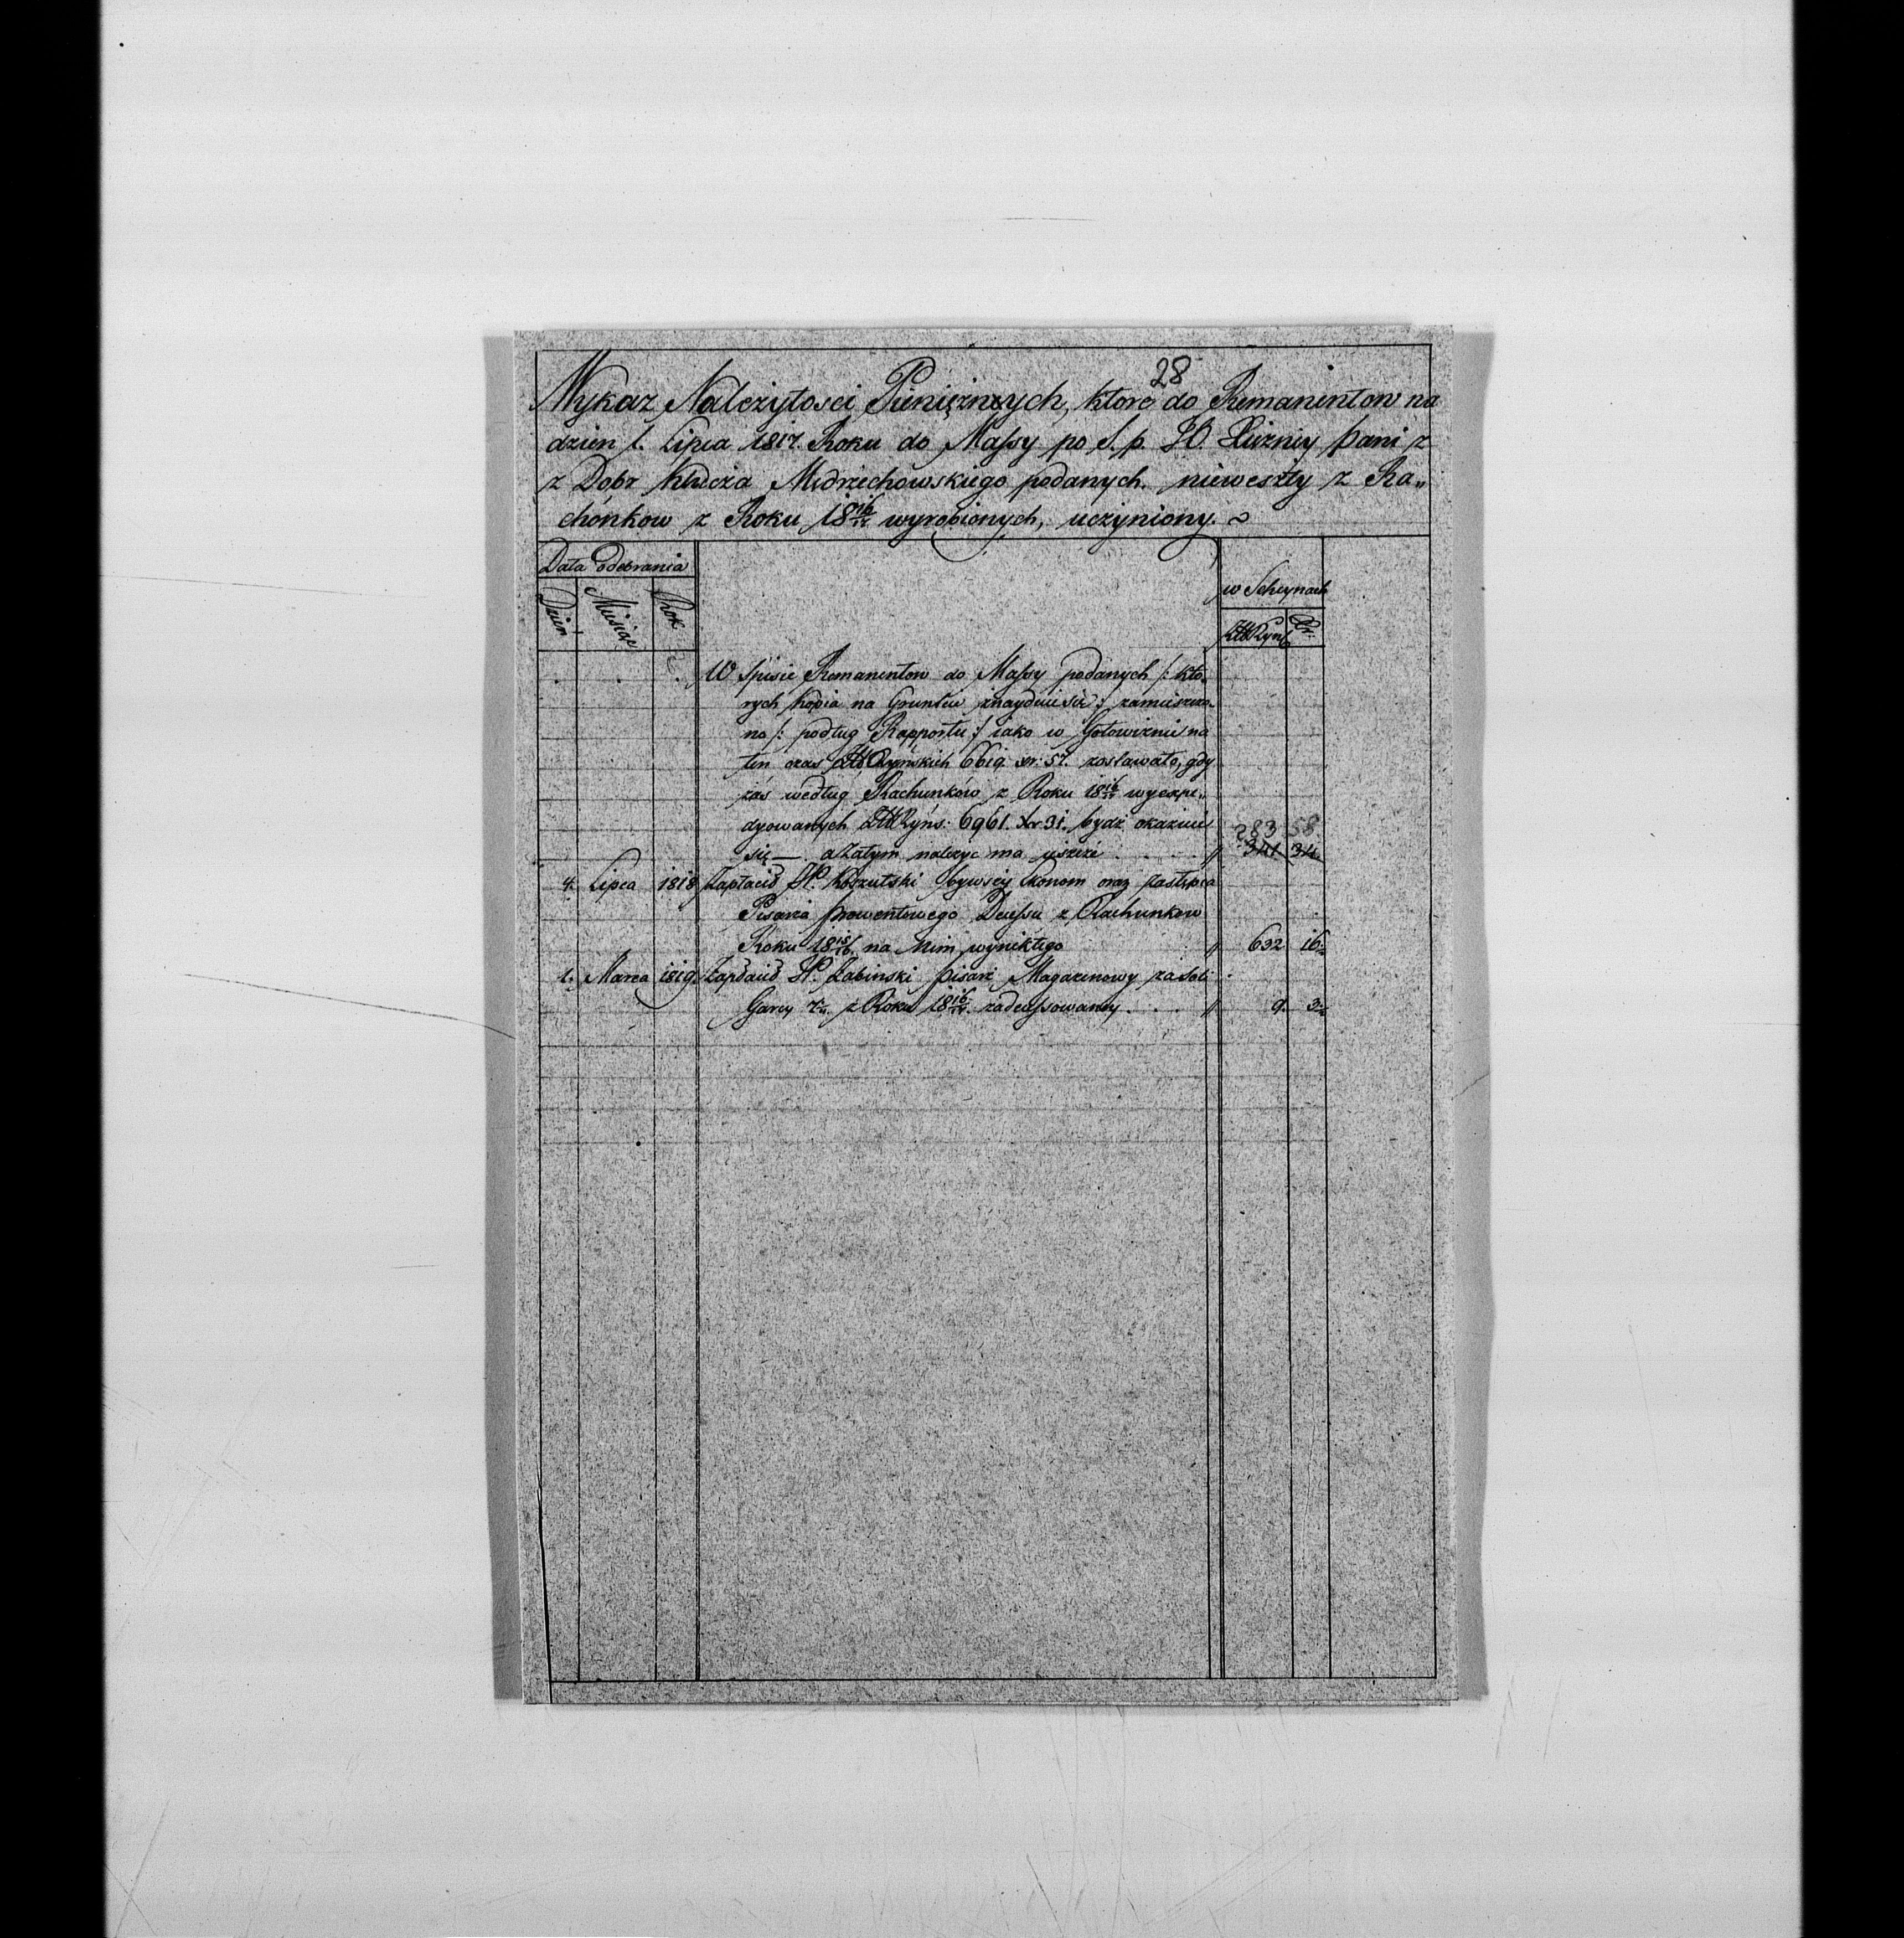 28
Wykaz Należytosci Pieniężnych, ktore do Remanentow na
dzien 1. Lipca 1817. Roku do Massy po S. p. JO. Xiężney Pani z
z Dobr Klucza Mędrzechowskiego podanych. nieweszły z Ra„
chonkow z Roku 18 16/17 wyrobionych, uczyniony.
Data odebrania
w Scheynach
Dzien Miesiąc Rok
ZłRyns Xr:
W Spisie Remanentow do Massy podanych /: kto„
rych Kopia na Gruntcie znayduie się :/ zamieszczo„
no /: podług Rapportu :/ iako w Gotowiznie na
ten czas ZłRynskich 6619 xr: 57. zostawało, gdy
zás według Rachunków z Roku 18 16/17 wyexpe„
dyowanych ZłRyńs: 6961. Xr 31. bydź okazuie 283 58
się — aZatym należyc ma jeszcze . . . . // 341 34
4. Lipca 1818 Zapłacił JP. Koszutski bywszy Ekonom oraz Zastępca
Pisarza prowentowego Defessu z Rachunkow
Roku 18 15/16 na Nim wynikłego // 632 16
1. Marca 1819. Zapłacił JP. Zabinski Pisarz Magazynowy za Soli
Garcy 7 z Roku 18 16/17. zadefessowaney . . . // 9. 3